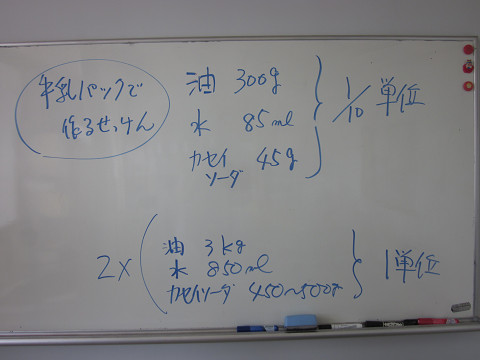 牛乳パックで
作るせっけん
油 300g
水 85ml
カセイ 45g
ソーダ
1/10 単位
2×
油 3kg
水 850ml
カセイソーダ 450~500g
1単位